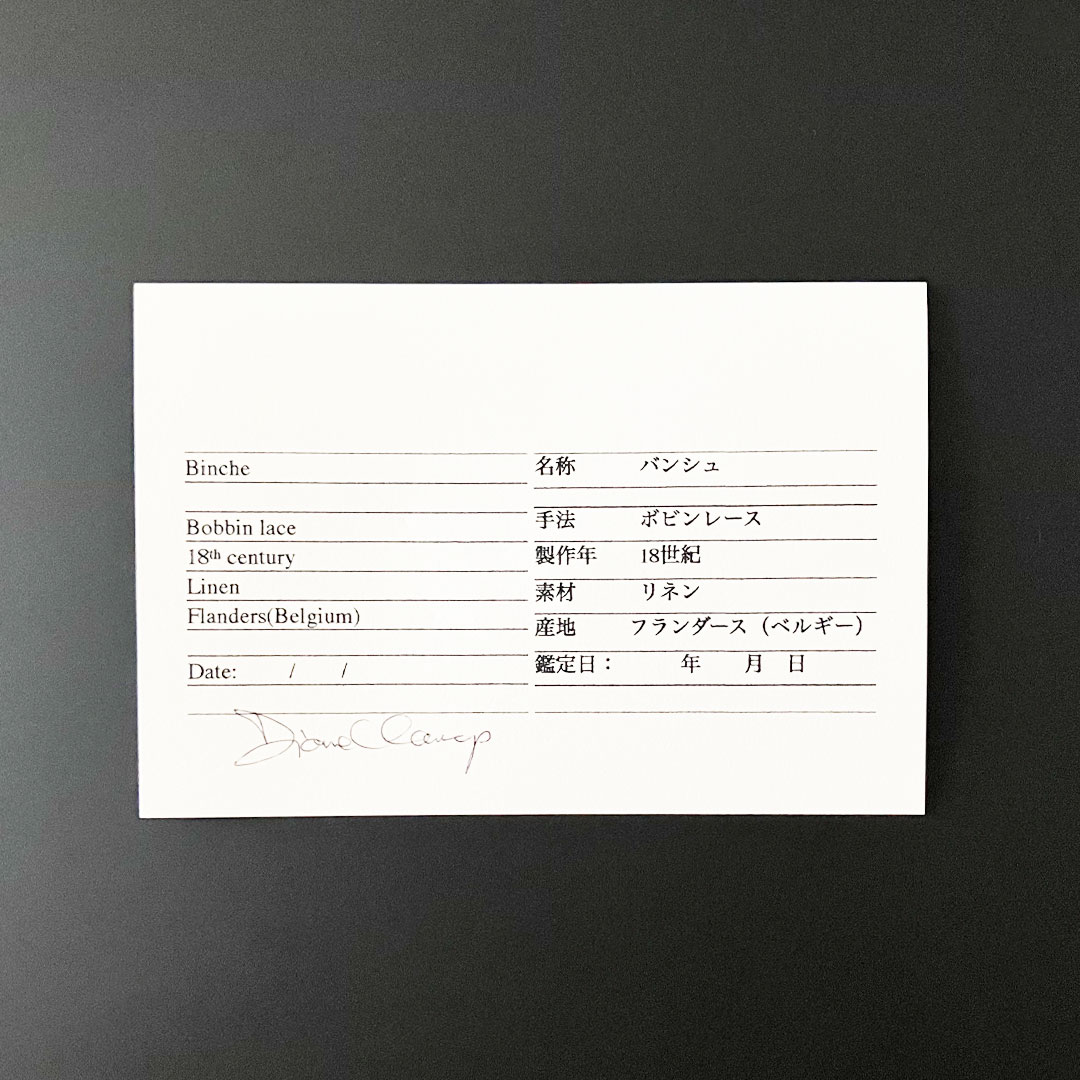 Binche
Bobbin lace
18th century
Linen
Flanders(Belgium)
Date: / /
名称 バンシュ
手法 ボビンレース
製作年 18世紀
素材 リネン
産地 フランダース（ベルギー）
鑑定日： 年 月 日
Diane